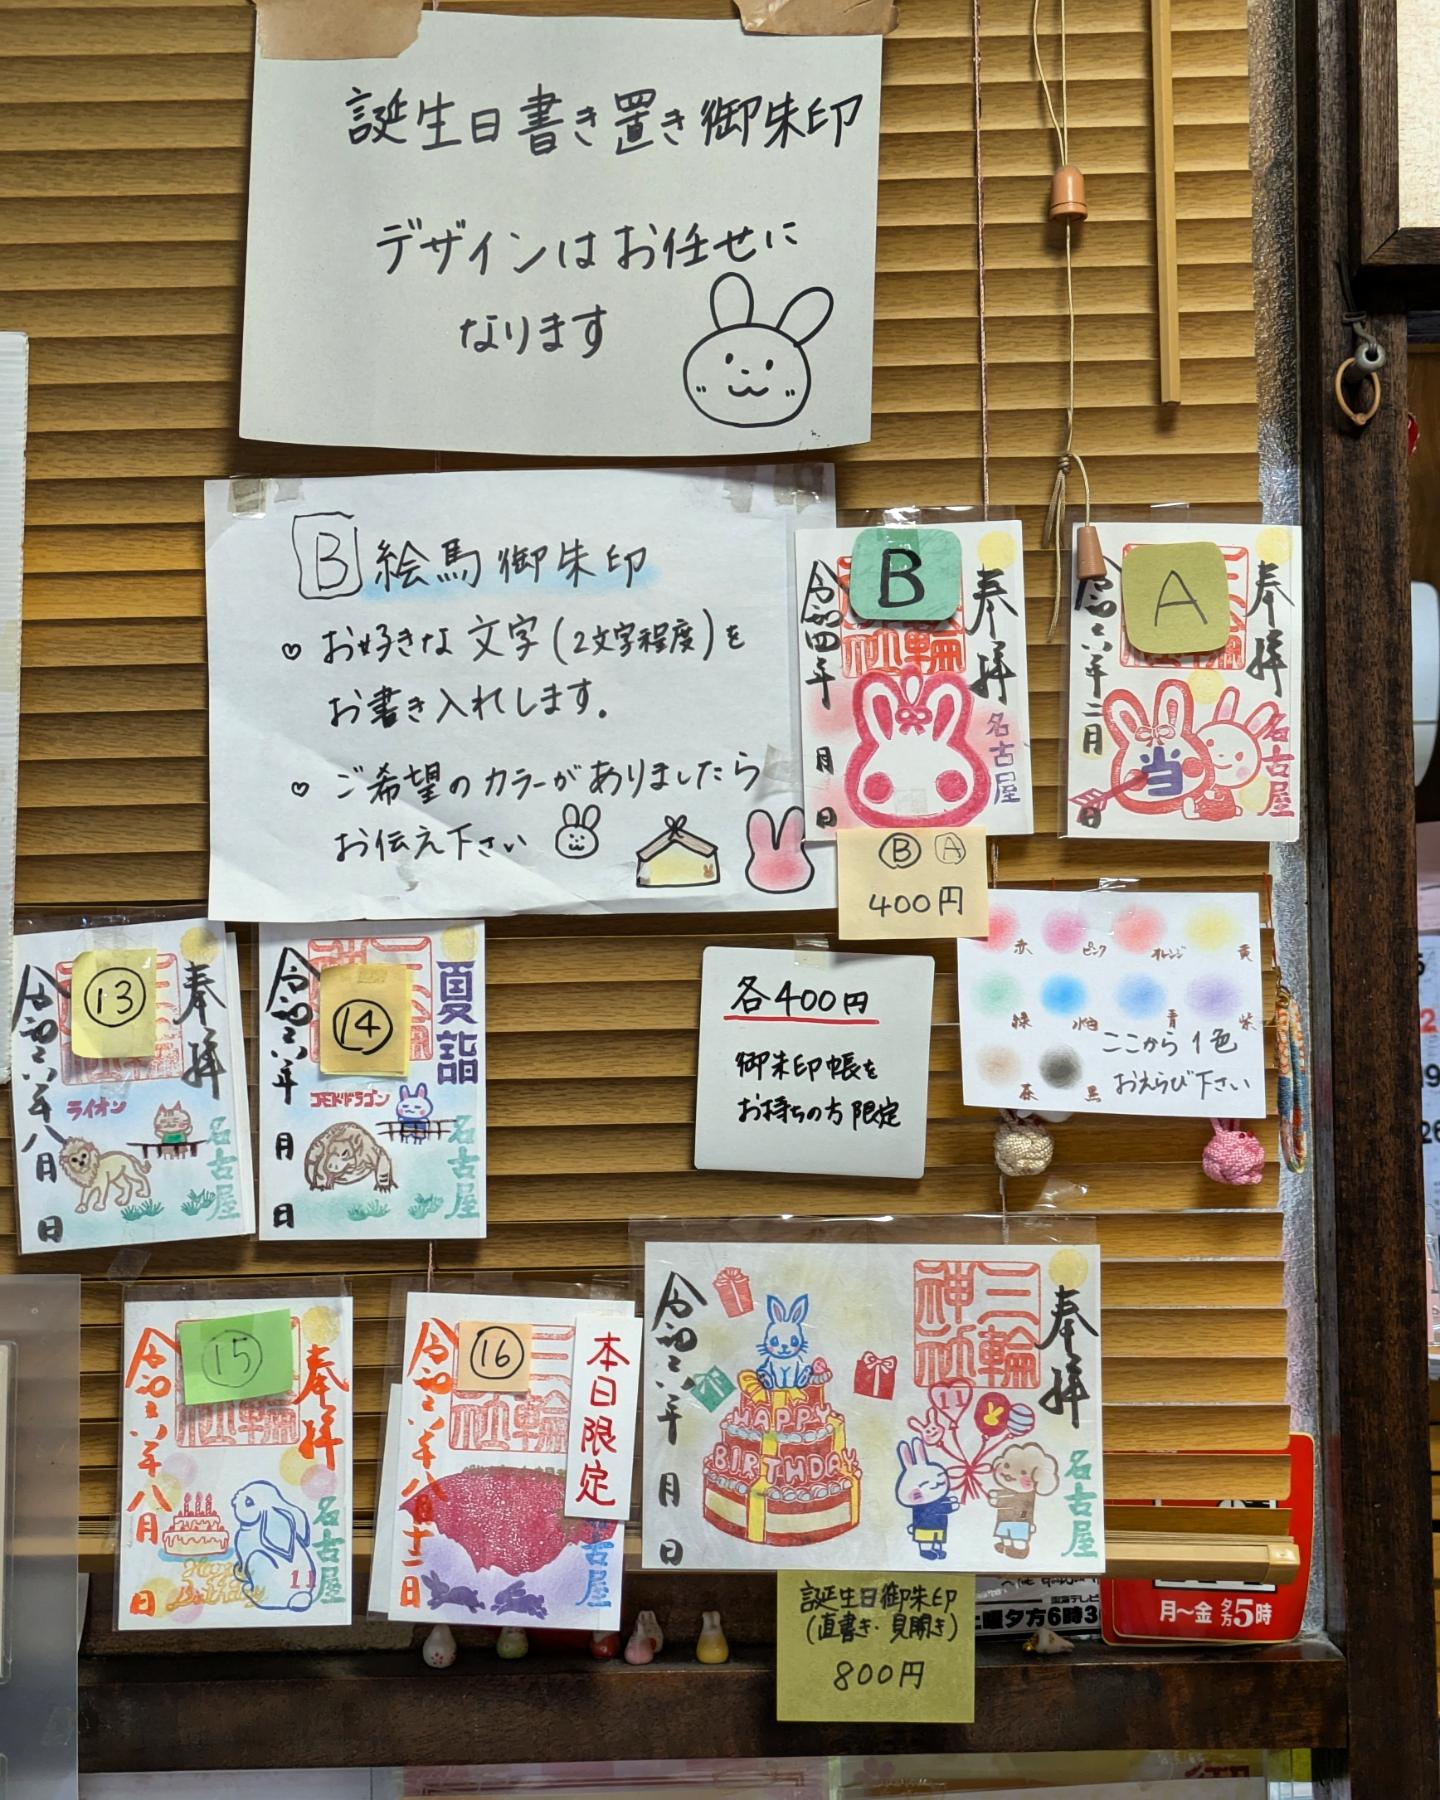 誕生日書き置き御朱印
デザインはお任せに
なります
B 絵馬御朱印
♡ お好きな文字(2文字程度)を
お書き入れします。
♡ ご希望のカラーがありましたら
お伝え下さい
B
奉拝
三輪神社
名古屋
令和四年 月 日
A
奉拝
当
名古屋
令和六年二月 日
Ⓑ A
400円
赤 ピンク オレンジ 黄
緑 水色 青 紫
茶 黒
ここから1色
おえらび下さい
各400円
御朱印帳を
お持ちの方限定
⑬
奉拝
ライオン
名古屋
令和六年八月 日
⑭
夏詣
コモドドラゴン
名古屋
令和六年 月 日
⑮
奉拝
Happy
Birthday
11
名古屋
令和六年八月 日
⑯
本日限定
名古屋
令和六年八月十二日
奉拝
三輪神社
11
HAPPY
BIRTHDAY
名古屋
令和六年 月 日
誕生日御朱印
(直書き・見開き)
800円
東海テレビ
土曜夕方6時3
月〜金 夕方5時